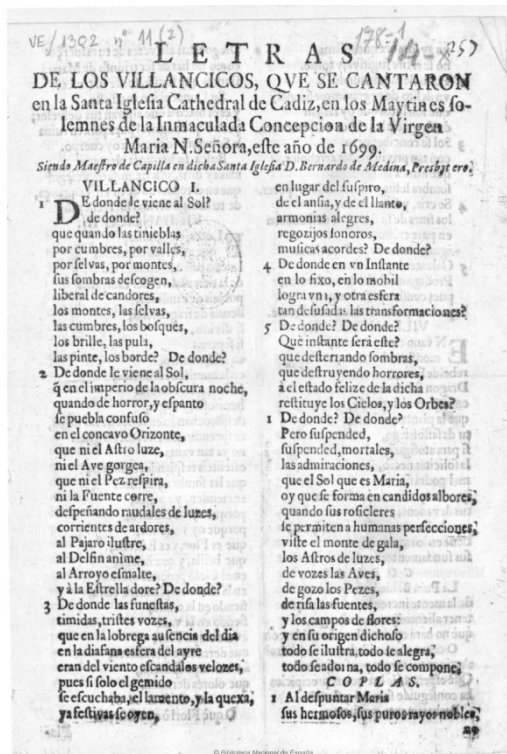 VE/1302 nº 11(2)
178-1
257
LETRAS
DE LOS VILLANCICOS, QVE SE CANTARON
en la Santa Iglesia Cathedral de Cadiz, en los Maytines so-
lemnes de la Inmaculada Concepcion de la Virgen
Maria N. Señora, este año de 1699.
Siendo Maestro de Capilla en dicha Santa Iglesia D. Bernardo de Medina, Presbytero.
VILLANCICO I.
1 DE donde le viene al Sol?
de donde?
que quando las tinieblas
por cumbres, por valles,
por selvas, por montes,
sus sombras descogen,
liberal de candores,
los montes, las selvas,
las cumbres, los bosques,
los brille, las pula,
las pinte, los borde? De donde?
2 De donde le viene al Sol,
q̃ en el imperio de la obscura noche,
quando de horror, y espanto
se puebla confuso
en el concavo Orizonte,
que ni el Astro luze,
ni el Ave gorgea,
que ni el Pez respira,
ni la Fuente corre,
despeñando raudales de luzes,
corrientes de ardores,
al Pajaro ilustre,
al Delfin anime,
al Arroyo esmalte,
y à la Estrella dore? De donde?
3 De donde las funestas,
timidas, tristes vozes,
que en la lobrega ausencia del dia
en la diafana esfera del ayre
eran del viento escandalos velozes,
pues si solo el gemido
se escuchaba, el lamento, y la quexa,
ya festivas se oyen,
en lugar del suspiro,
de el ansia, y de el llanto,
armonias alegres,
regozijos sonoros,
musicas acordes? De donde?
4 De donde en vn Instante
en lo fixo, en lo mobil
logra vna, y otra esfera
tan desusadas transformaciones?
5 De donde? De donde?
Què instante serà este?
que desterrando sombras,
que destruyendo horrores,
à el estado felize de la dicha
restituye los Cielos, y los Orbes?
1 De donde? De donde?
Pero suspended,
suspended, mortales,
las admiraciones,
que el Sol que es Maria,
oy que se forma en candidos albores,
quando sus rosicleres
se permiten a humanas perfecciones,
viste el monte de gala,
los Astros de luzes,
de vozes las Aves,
de gozo los Pezes,
de risa las fuentes,
y los campos de flores:
y en su origen dichoso
todo se ilustra, todo se alegra,
todo se adorna, todo se compone.
COPLAS.
1 Al despuntar Maria
sus hermosos, sus puros rayos nobles,
© Biblioteca Nacional de España